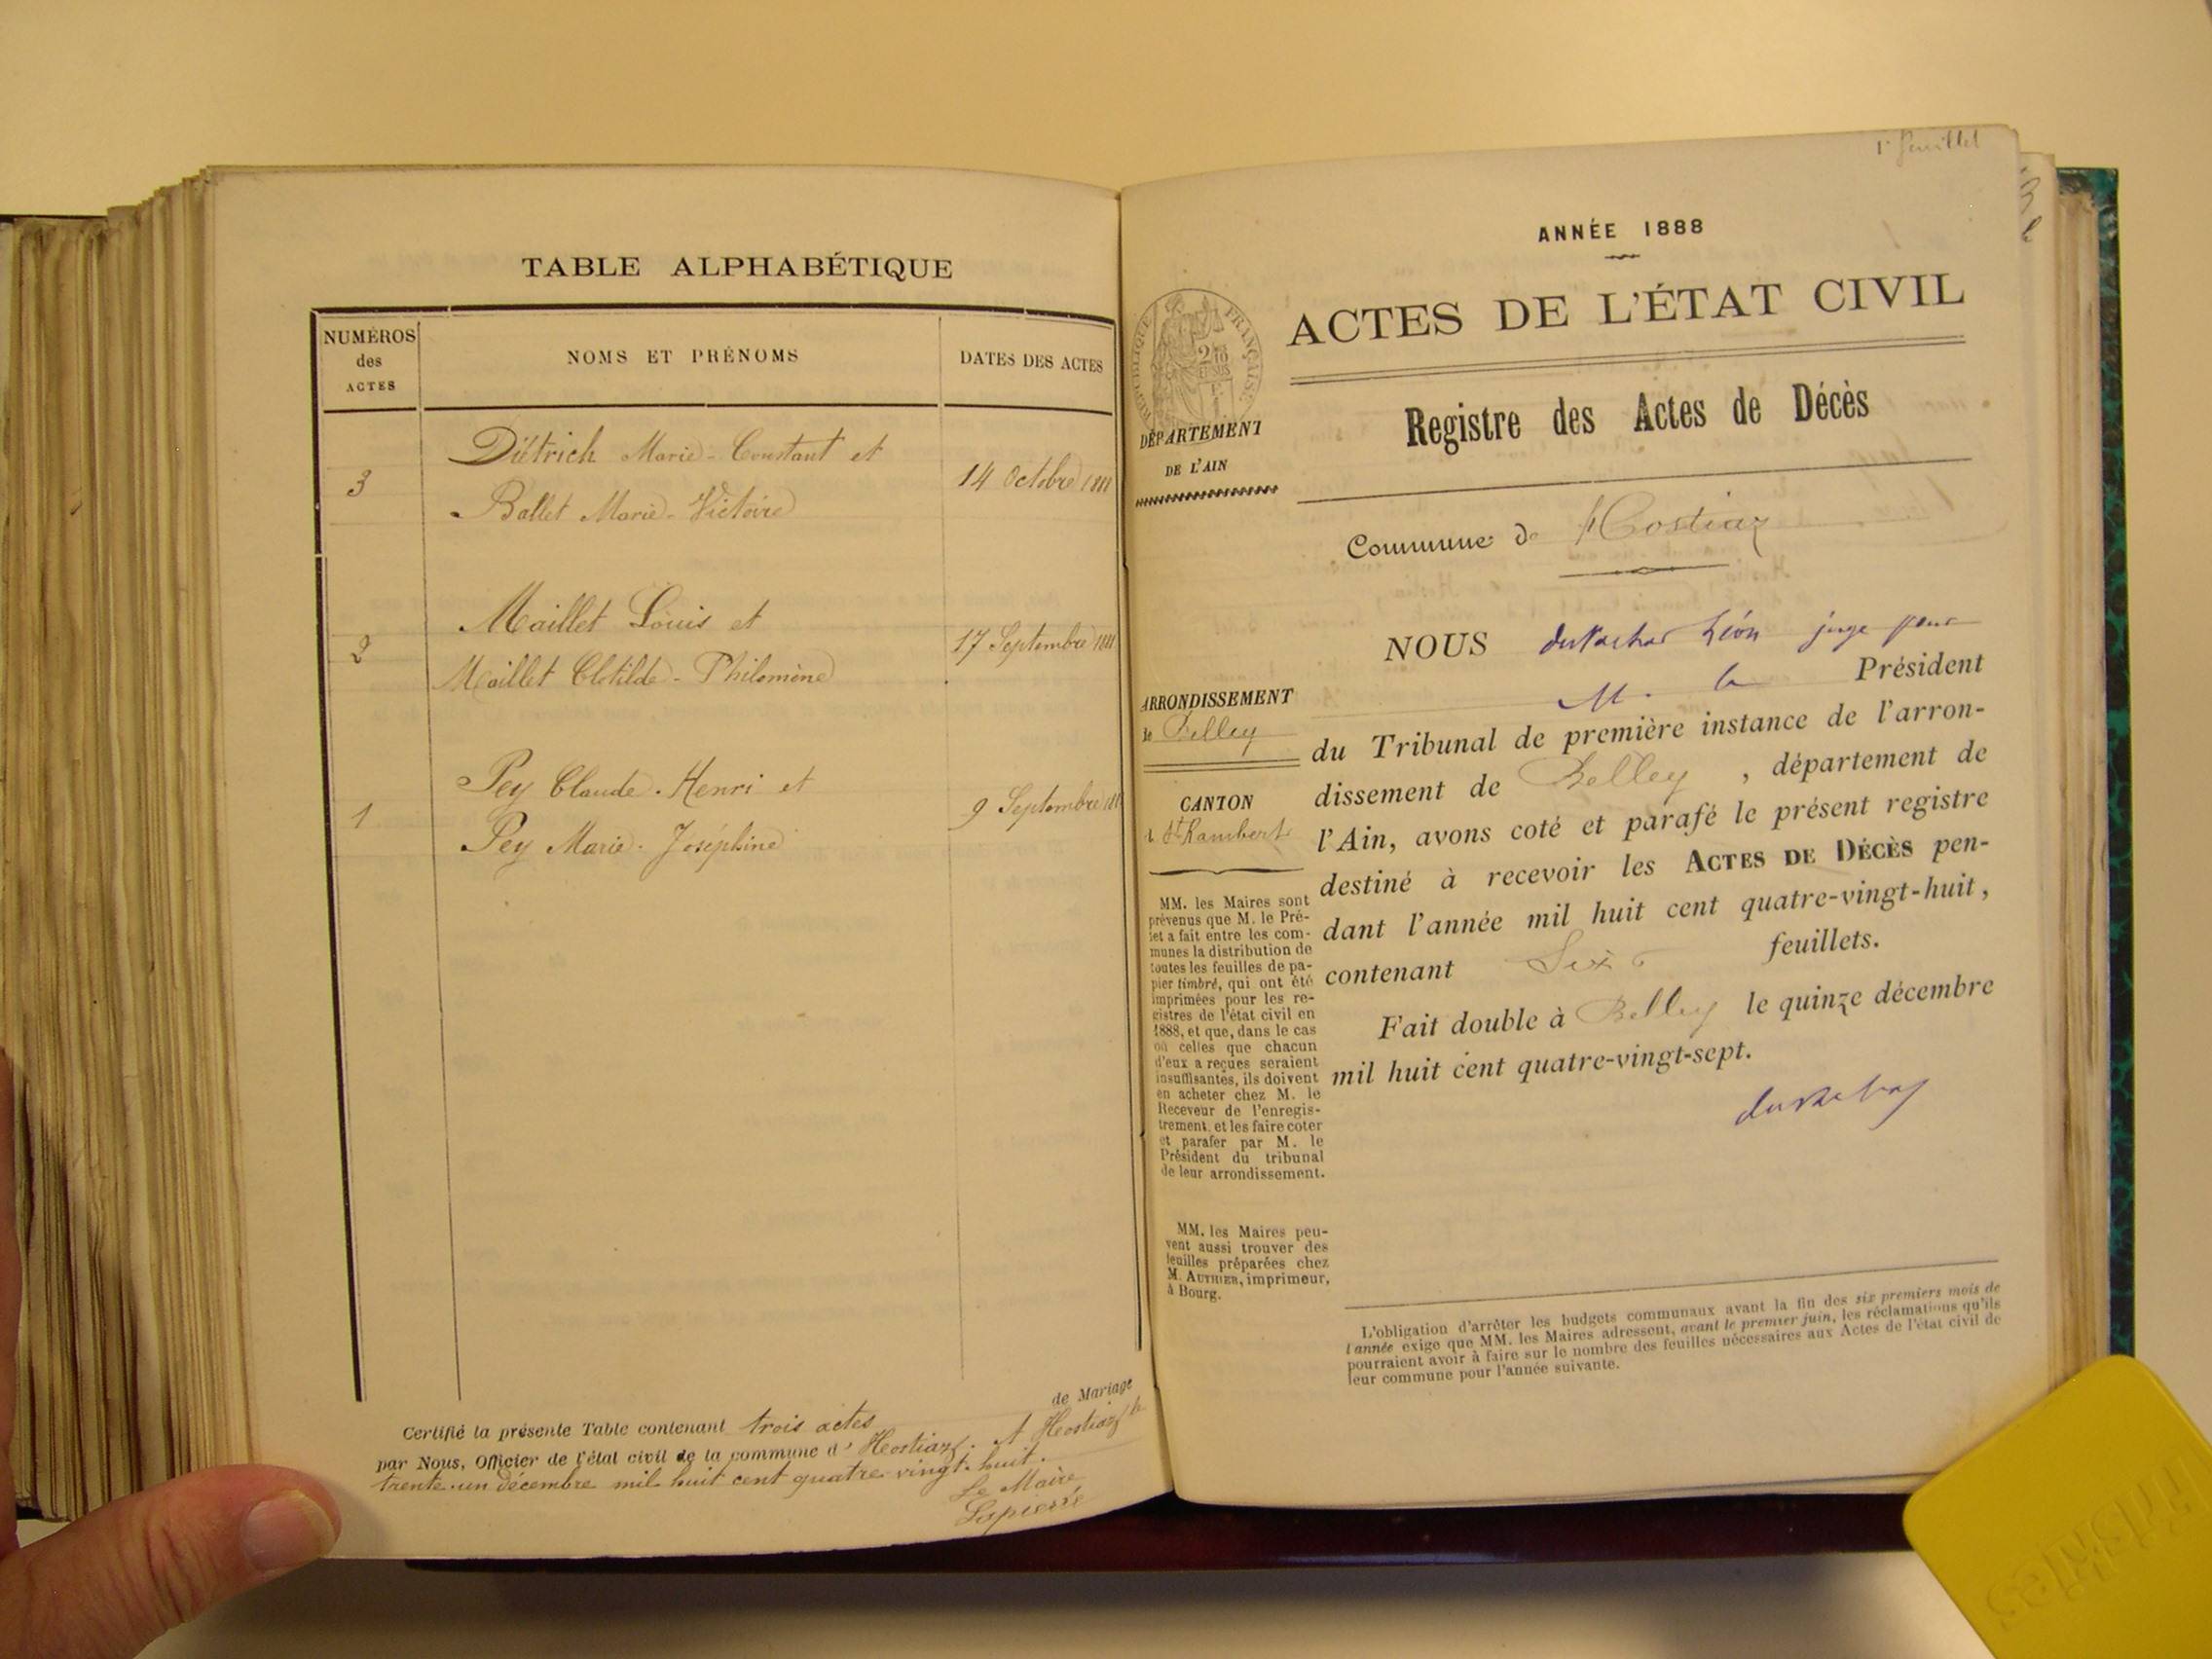 TABLE ALPHABÉTIQUE
NUMÉROS
des
ACTES
NOMS ET PRÉNOMS
DATES DES ACTES
Diétrich Marie-Constant et
3
14 Octobre 1888
Ballet Marie-Victoire
Maillet Louis et
2
17 Septembre 1888
Maillet Clotilde-Philomène
Pey Claude-Henri et
1
9 Septembre
Pey Marie-Joséphine
Certifié la présente Table contenant trois actes de Mariage
par Nous, Officier de l'état civil de la commune d'Hostiaz. A Hostiaz le
trente-un décembre mil huit cent quatre-vingt-huit.
Le Maire
Lapierre
1er feuillet
ANNÉE 1888
ACTES DE L'ÉTAT CIVIL
RÉPUBLIQUE FRANÇAISE
DÉPARTEMENT
DE L'AIN
Registre des Actes de Décès
Commune d Hostiaz
NOUS Léon juge pour
M. le Président
du Tribunal de première instance de l'arron-
dissement de Belley, département de
l'Ain, avons coté et parafé le présent registre
destiné à recevoir les ACTES DE DÉCÈS pen-
dant l'année mil huit cent quatre-vingt-huit,
contenant Six feuillets.
Fait double à Belley le quinze décembre
mil huit cent quatre-vingt-sept.
ARRONDISSEMENT
de Belley
CANTON
St Rambert
MM. les Maires sont
prévenus que M. le Pré-
fet a fait entre les com-
munes la distribution de
toutes les feuilles de pa-
pier timbré, qui ont été
imprimées pour les re-
gistres de l'état civil en
1888, et que, dans le cas
où celles que chacun
d'eux a reçues seraient
insuffisantes, ils doivent
en acheter chez M. le
Receveur de l'enregis-
trement, et les faire coter
et parafer par M. le
Président du tribunal
de leur arrondissement.
MM. les Maires peu-
vent aussi trouver des
feuilles préparées chez
M. AUTHIER, imprimeur,
à Bourg.
L'obligation d'arrêter les budgets communaux avant la fin des six premiers mois de
l'année exige que MM. les Maires adressent, avant le premier juin, les réclamations qu'ils
pourraient avoir à faire sur le nombre des feuilles nécessaires aux Actes de l'état civil de
leur commune pour l'année suivante.